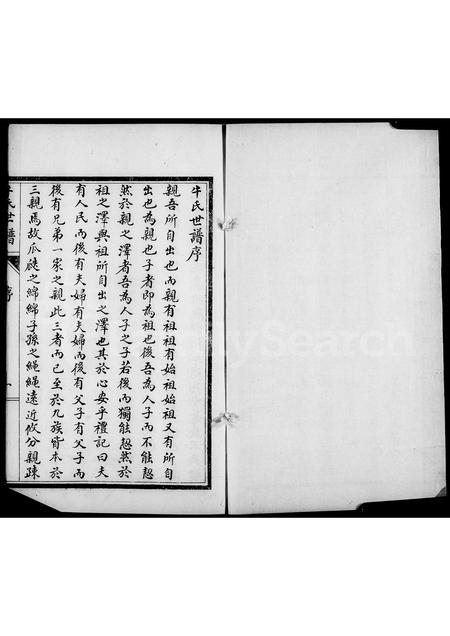 牛氏世譜序
親吾所自出也而親有祖祖有始祖始祖又有所自
出也為親也子者即為祖也後吾為人子而不能恝
然於親之澤者吾為人子之子若後而獨能恝然於
祖之澤與祖所自出之澤也其於心安乎禮記曰夫
有人民而後有夫婦有夫婦而後有父子有父子而
後有兄弟一家之親此三者而已至於九族皆本於
三親焉故瓜瓞之綿綿子孫之繩繩遠近攸分親疎
牛氏世譜
序
一